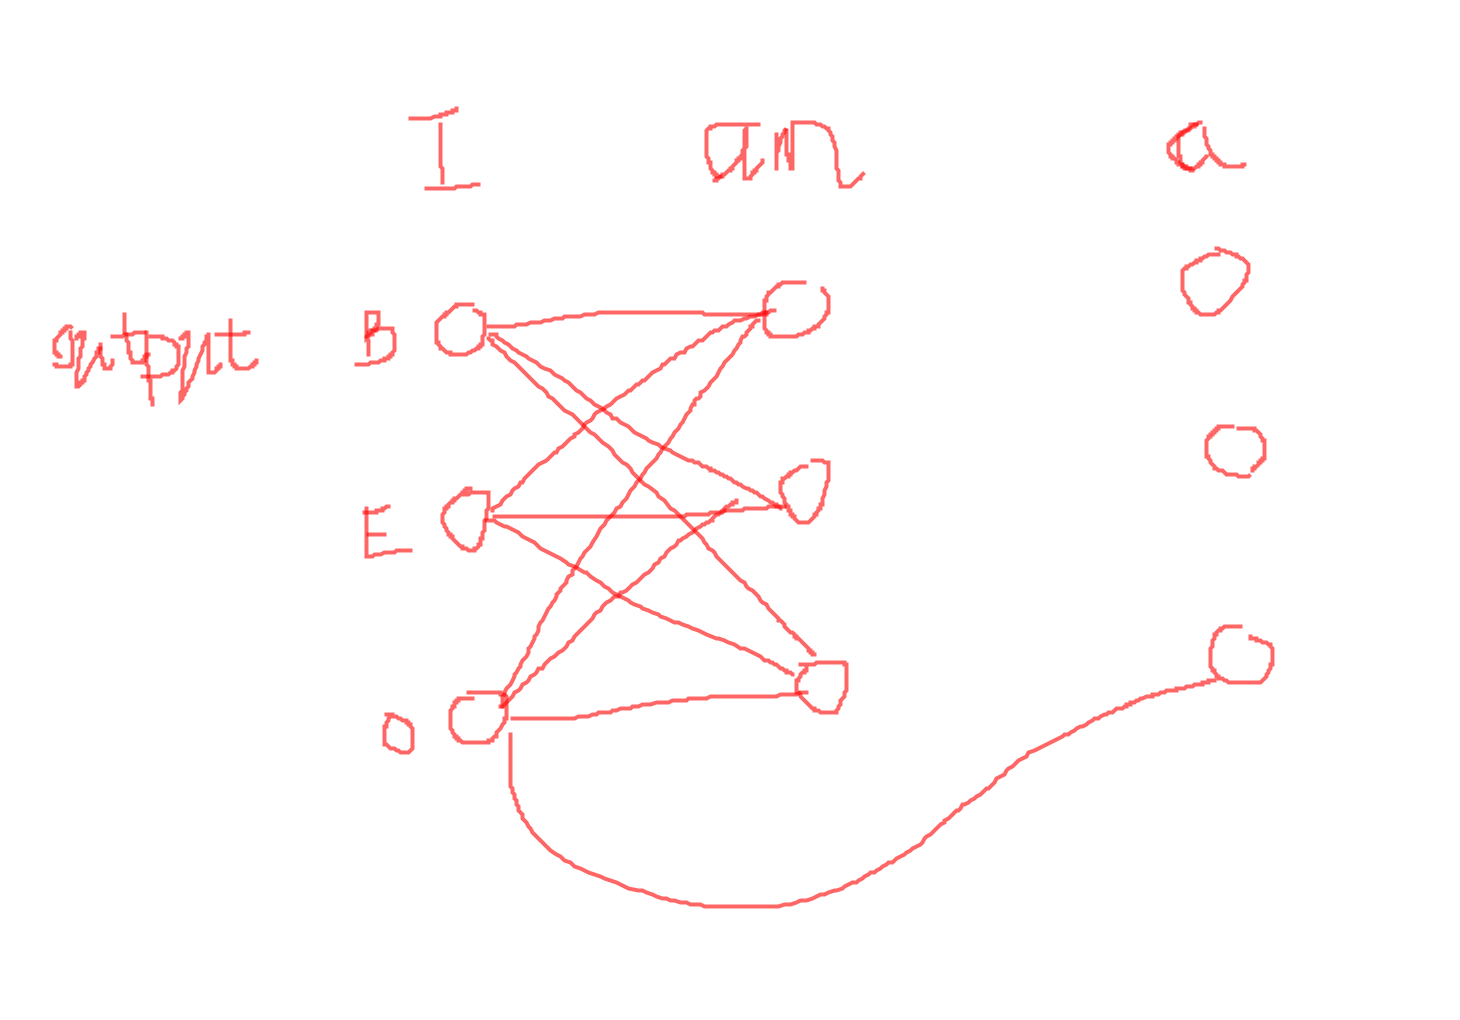 I am a
output B
E
O